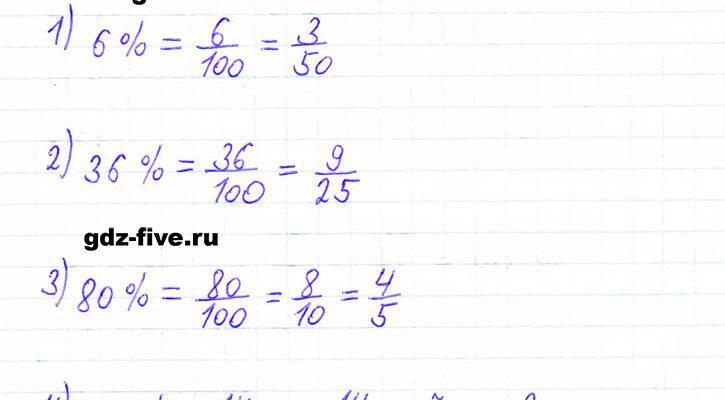 1) 6 % = 6/100 = 3/50
2) 36 % = 36/100 = 9/25
gdz-five.ru
3) 80 % = 80/100 = 8/10 = 4/5